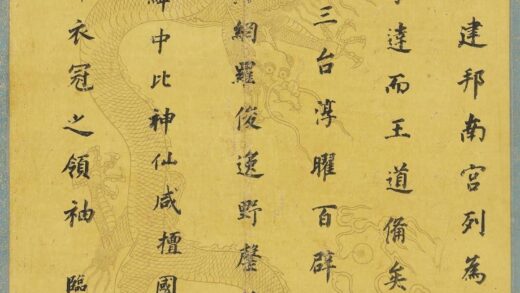 建邦南宮列為
達而王道備矣
三台淳曜百辟
網羅俊逸野罄
中比神仙咸擅國
衣冠之領袖臨